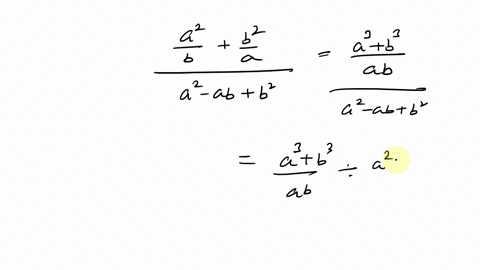 (a²/b + b²/a)/(a²-ab+b²) = ((a³+b³)/ab)/(a²-ab+b²)
= (a³+b³)/ab ÷ a²